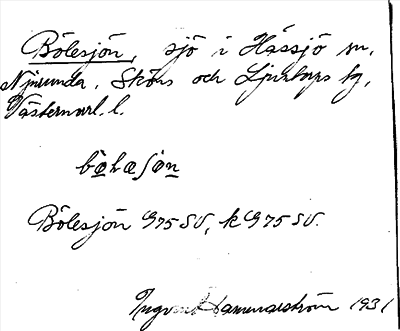 Bölesjön, sjö i Hässjö sn,
Njurunda, Sköns och Ljustorps tg,
Västernorrl. l.
bö̱læʃö̱n
Bölesjön G 75 SV, k G 75 SV.
Ingvar Hammarström 1931